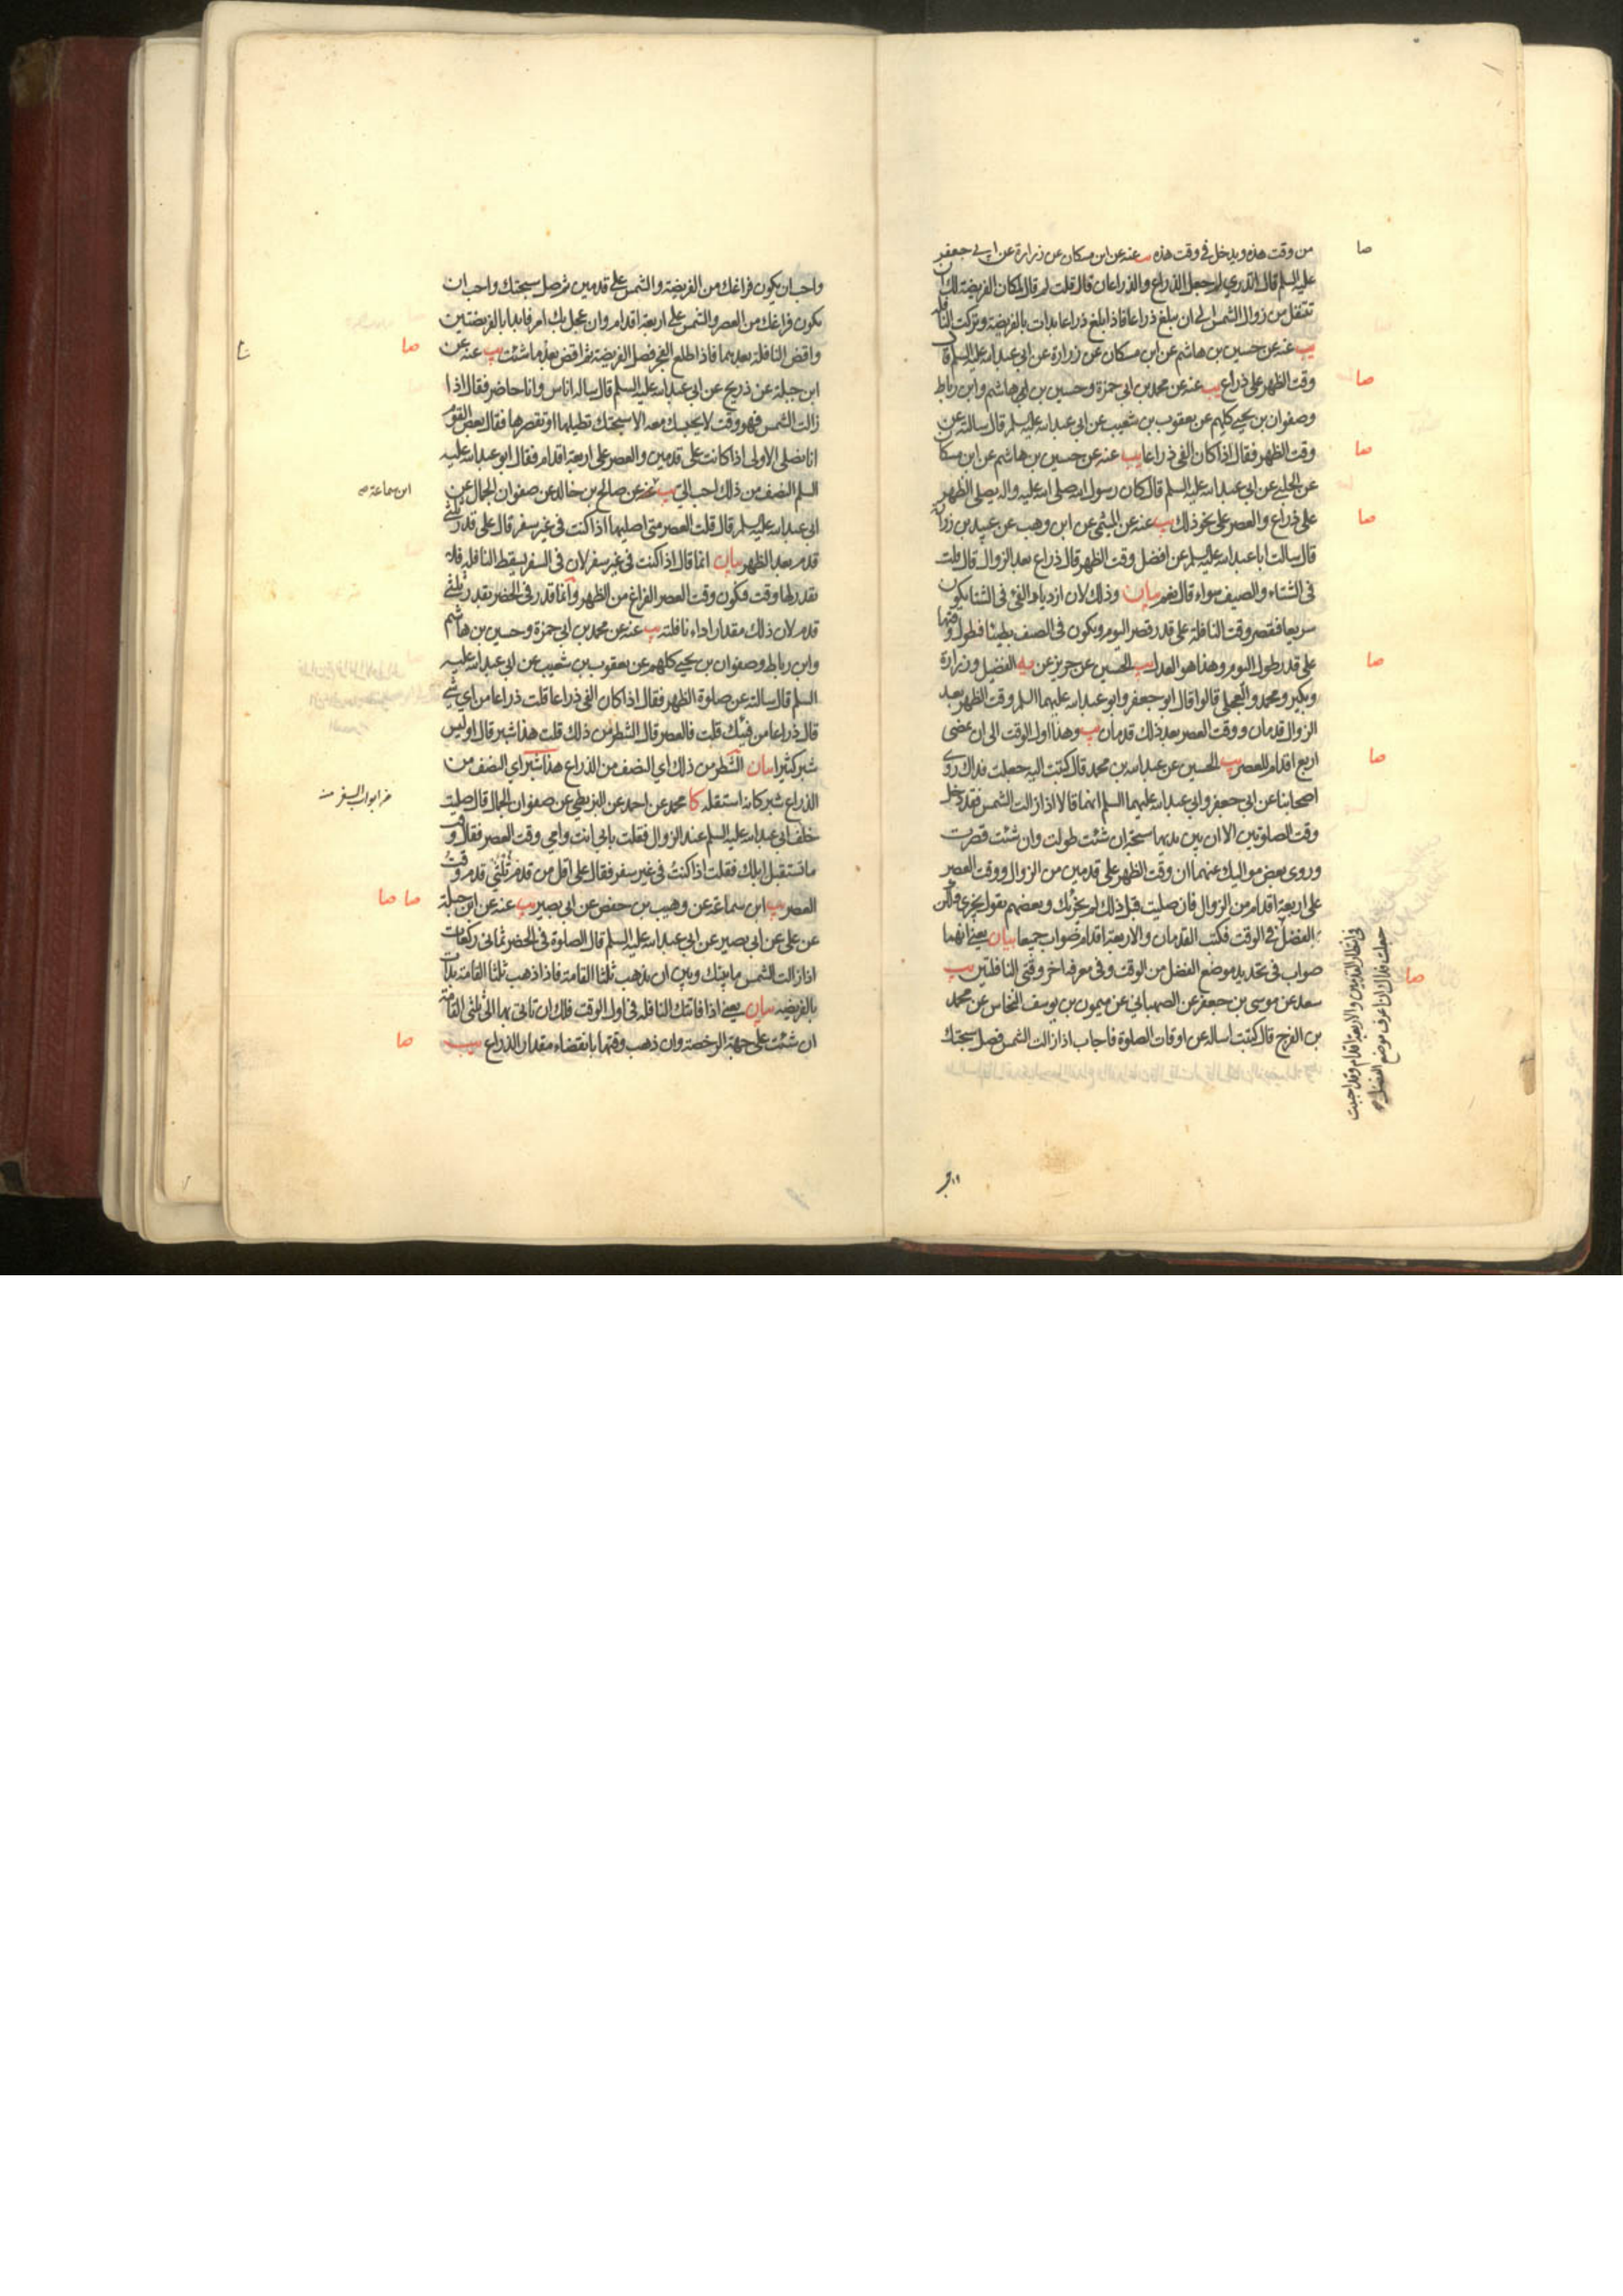 من وقت هذه ويدخل في وقت هذه يب عنه عن ابن مسكان عن زرارة عن ابي جعفر
عليه السلم قال اتدري لم جعل الذراع والذراعان قال قلت لم قال لمكان الفريضة لك ان
تتنفل من زوال الشمس الى ان يبلغ ذراعا فاذا بلغ ذراعا بدات بالفريضة وتركت النافلة
يب عنه عن حسين بن هاشم عن ابن مسكان عن زرارة عن ابي عبدالله عليه السلم قال
وقت الظهر على ذراع يب عنه عن محمد بن ابي حمزة وحسين بن ابي هاشم وابن رباط
وصفوان بن يحيى كلهم عن يعقوب بن شعيب عن ابي عبدالله عليه السلم قال سالته عن
وقت الظهر فقال اذا كان الفئ ذراعا يب عنه عن حسين بن هاشم عن ابن مسكان
عن الحلبي عن ابي عبدالله عليه السلم قال كان رسول الله صلى الله عليه واله يصلى الظهر
على ذراع والعصر على نحو ذلك يب عنه عن الميثمي عن ابن وهب عن عبيد بن زرارة
قال سالت ابا عبدالله عليه السلم عن افضل وقت الظهر قال ذراع بعد الزوال قال قلت
في الشتاء والصيف سواء قال نعم بيان وذلك لان ازدياد الفئ في الشتا يكون
سريعا فقصر وقت النافلة على قدر قصر اليوم ويكون في الصيف بطيئا فطول وقتها
على قدر طول اليوم وهذا هو العدل يب الحسين عن حريز عن يه الفضيل وزرارة
وبكير ومحمد والعجلي قالوا قال ابو جعفر وابو عبدالله عليهما السلم وقت الظهر بعد
الزوال قدمان ووقت العصر بعد ذلك قدمان يب وهذا اول الوقت الى ان يمضى
اربع اقدام للعصر يب الحسين عن عبدالله بن محمد قال كتبت اليه جعلت فداك روى
اصحابنا عن ابي جعفر وابي عبدالله عليهما السلم انهما قالا اذا زالت الشمس فقد دخل
وقت الصلوتين الا ان بين يديهما سبحة ان شئت طولت وان شئت قصرت
وروى بعض مواليك عنهما ان وقت الظهر على قدمين من الزوال ووقت العصر
على اربعة اقدام من الزوال فان صليت قبل ذلك لم يجزئك وبعضهم يقول يجزي ولكن
الفضل في الوقت فكتب القدمان والاربعة اقدام صواب جميعا بيان يعني انهما
صواب في تحديد موضع الفضل من الوقت وفي معرفة اخر وقتي النافلتين يب
سعد عن موسى بن جعفر عن الصهباني عن ميمون بن يوسف النخاس عن محمد
بن الفرج قال كتبت اساله عن اوقات الصلوة فاجاب اذا زالت الشمس فصل سبحتك
صا
صا
صا
صا
صا
صا
صا
في انتظار القدمين والاربعة اقدام وقد احببت
جعلت فداك ان اعرف موضع الفضل
واحب ان يكون فراغك من الفريضة والشمس على قدمين ثم صل سبحتك واحب ان
يكون فراغك من العصر والشمس على اربعة اقدام وان عجل بك امر فابدا بالفريضتين
واقض النافلة بعدهما فاذا طلع الفجر فصل الفريضة ثم اقض بعد ما شئت يب عنه عن
ابن جبلة عن ذريح عن ابي عبدالله عليه السلم قال ساله اناس وانا حاضر فقال اذا
زالت الشمس فهو وقت لا يحبسك معه الا سبحتك تطيلها او تقصرها فقال بعض القوم
انا نصلي الاولى اذا كانت على قدمين والعصر على اربعة اقدام فقال ابو عبدالله عليه
السلم النصف من ذلك احب الي يب عنه عن صالح بن خالد عن صفوان الجمال عن
ابي عبدالله عليه السلم قال قلت العصر متى اصليها اذا كنت في غير سفر قال على قدر ثلثي
قدم بعد الظهر بيان انما قال اذا كنت في غير سفر لان في السفر يسقط النافلة فلا
يقدر لها وقت فكون وقت العصر الفراغ من الظهر وانما قدر في الحضر بقدر ثلثي
قدم لان ذلك مقدار اداء نافلته يب عنه عن محمد بن ابي حمزة وحسين بن هاشم
وابن رباط وصفوان بن يحيى كلهم عن يعقوب بن شعيب عن ابي عبدالله عليه
السلم قال سالته عن صلوة الظهر فقال اذا كان الفئ ذراعا قلت ذراعا من اي شئ
قال ذراعا من فيئك قلت فالعصر قال الشطر من ذلك قلت هذا شبر قال اوليس
شبر كثيرا بيان الشطر من ذلك اي النصف من الذراع هذا شبر اي النصف من
الذراع شبر كانه استقله كا محمد عن احمد عن البزنطي عن صفوان الجمال قال صليت
خلف ابي عبدالله عليه السلم عند الزوال فقلت بابي انت وامي وقت العصر فقال وقت
ما تستقبل ابلك فقلت اذا كنت في غير سفر فقال على اقل من قدم ثلثي قدم وقت
العصر يب ابن سماعة عن وهيب بن حفص عن ابي بصير يب عنه عن ابن جبلة
عن علي عن ابي بصير عن ابي عبدالله عليه السلم قال الصلوة في الحضر ثماني ركعات
اذا زالت الشمس ما بينك وبين ان يذهب ثلثا القامة فاذا ذهب ثلثا القامة بدات
بالفريضة بيان يعني اذا فاتتك النافلة في اول الوقت فلك ان تاتي بها الى ثلثي القامة
ان شئت على جهة الرخصة وان ذهب وقتها بانقضاء مقدار الذراع يب
صا
ابن سماعة
من ابواب السفر منه
صا صا
صا